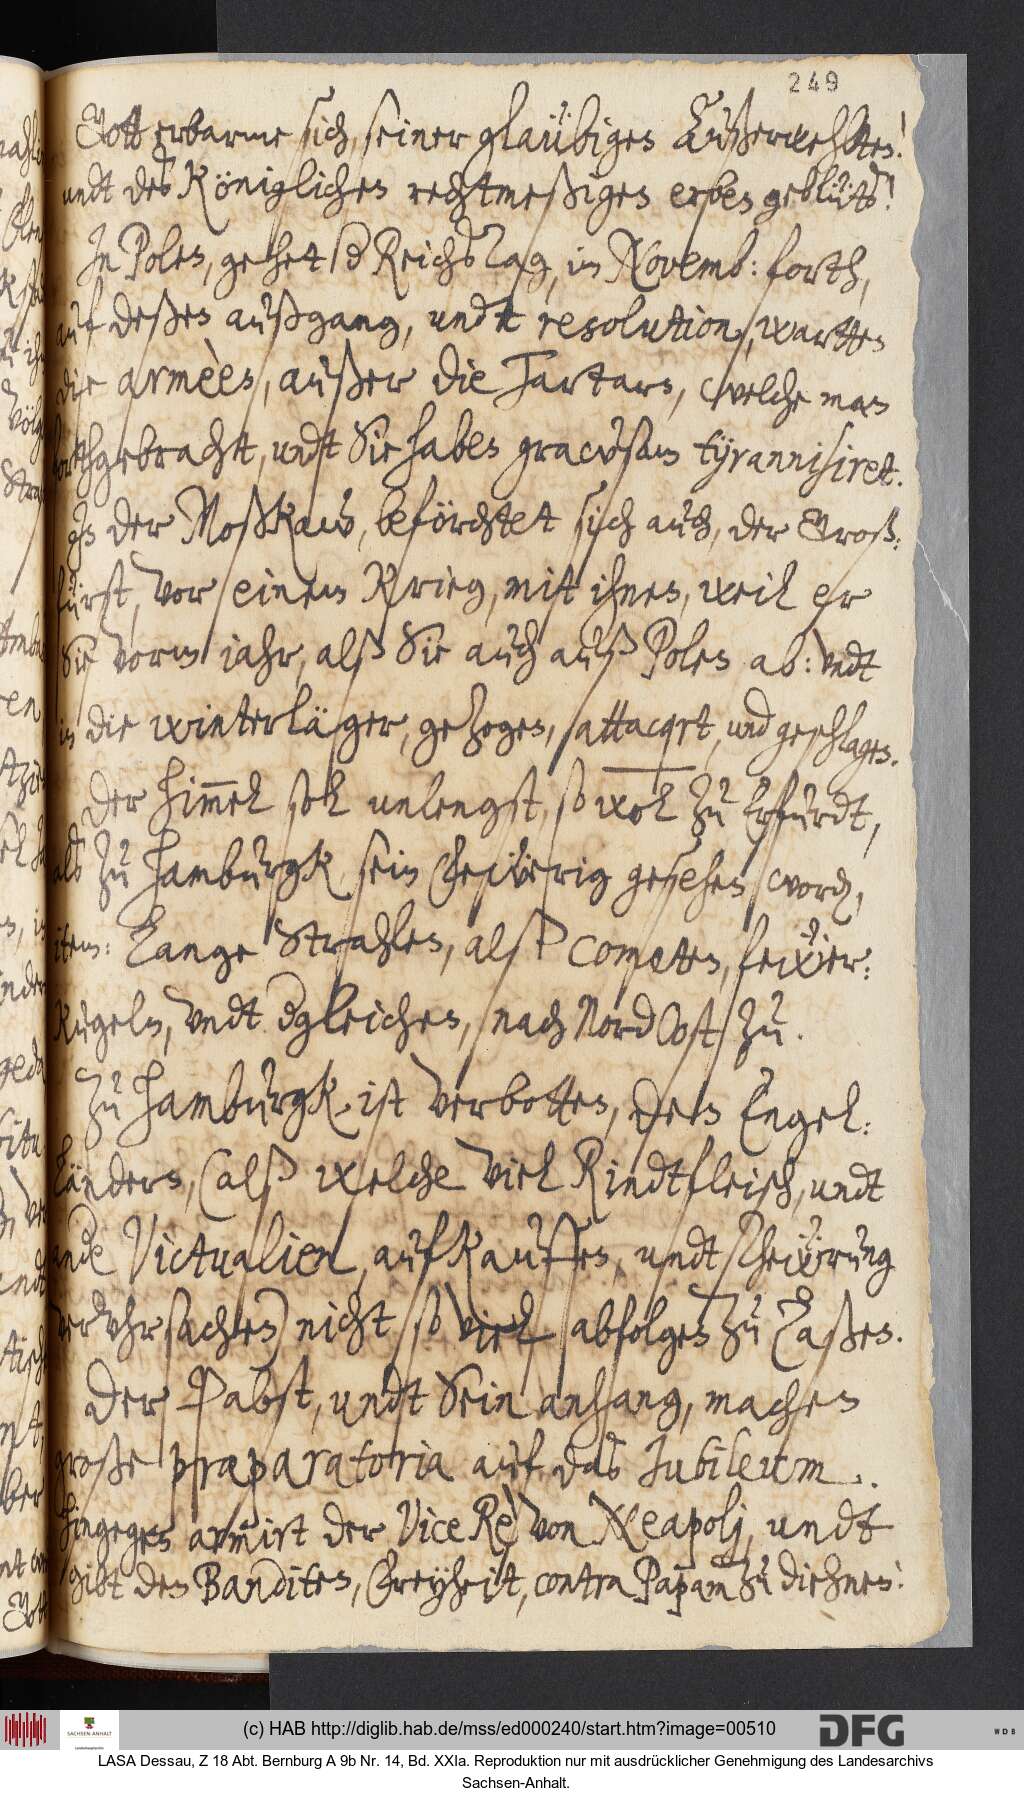 249
Gott erbarme sich, seiner glaübigen Außerwehlten!
undt des Königlichen rechtmeßigen erben geblüts!
In Polen, gehet der ReichsTag, in Novemb: forth,
auf deßen außgang, undt resolution, wartten
die armèen, außer die Tartarn, welche man
forthgebracht, undt Sie haben grawsam tyrannisiret.
In der Moßkaw, beförchtet sich auch, der Groß:
fürst, vor einem Krieg, mit ihnen, weil er
Sie vorm jahr, alß Sie auch auß Polen ab: undt
in die winterläger, gezogen, attacqrt, und geschlagen.
Der himmel sol unlengst, so wol zu Erfurdt,
als zu Hamburgk sein fewerig gesehen word,
item: Lange Strahlen, alß Cometen, fewer:
Kugeln, undt dergleichen, nach NordOost zu.
Zu Hamburgk, ist verbotten, den Engel:
ländern, (alß welche viel Rindtfleisch, undt
ande Victualien, aufkauffen, undt thewrung
veruhrsachen) nicht so viel abfolgen zu laßen.
Der Pabst, undt Sein anhang, machen
große præparatoria auf das Jubileum.
hingegen armirt der Vice Rè von Neapolj, undt
gibt den Banditen, Freyheit, contra Papam zu diehnen!
(c) HAB http://diglib.hab.de/mss/ed000240/start.htm?image=00510
SACHSEN-ANHALT
DFG
WDB
LASA Dessau, Z 18 Abt. Bernburg A 9b Nr. 14, Bd. XXIa. Reproduktion nur mit ausdrücklicher Genehmigung des Landesarchivs
Sachsen-Anhalt.